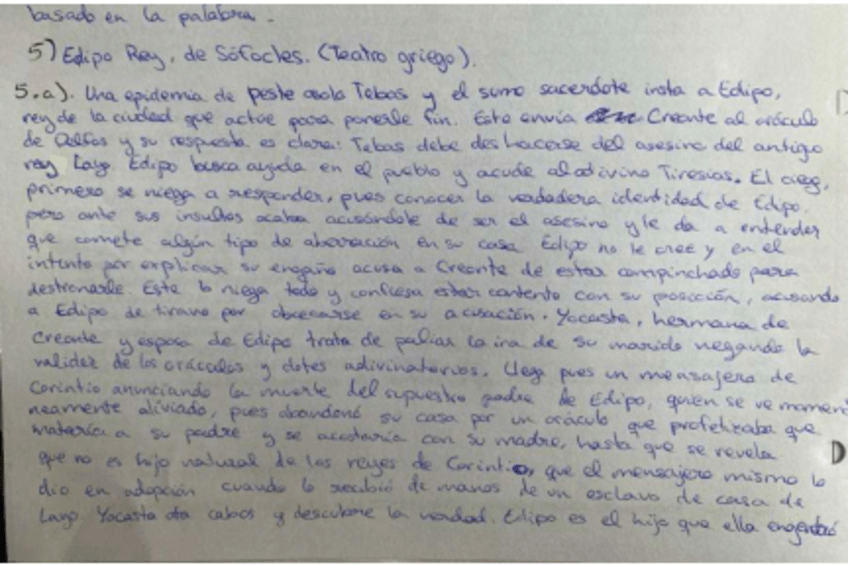 basado en la palabra.
5) Edipo Rey, de Sófocles. (Teatro griego).
5.a). Una epidemia de peste asola Tebas y el sumo sacerdote insta a Edipo,
rey de la ciudad que actúe para ponerle fin. Este envía Creonte al oráculo
de Delfos y su respuesta es clara: Tebas debe deshacerse del asesino del antiguo
rey Layo. Edipo busca ayuda en el pueblo y acude al adivino Tiresias. El ciego,
primero se niega a responder, pues conocer la verdadera identidad de Edipo.
pero ante sus insultos acaba acusándole de ser el asesino y le da a entender
que comete algún tipo de aberración en su casa. Edipo no le cree y en el
intento por explicar su engaño acusa a Creonte de estar compinchado para
destronarle. Este lo niega todo y confiesa estar contento con su posicción, acusando
a Edipo de tirano por obcecarse en su acusación. Yocasta, hermana de
Creonte y esposa de Edipo trata de paliar la ira de su marido negando la
validez de los oráculos y dotes adivinatorios. Llega pues un mensajero de
Corintio anunciando la muerte del supuesto padre de Edipo, quien se ve momen
neamente aliviado, pues abandonó su casa por un oráculo que profetizaba que
mataría a su padre y se acostaría con su madre, hasta que se revela
que no es hijo natural de los reyes de Corintio, que el mensajero mismo lo
dio en adopción cuando lo recibió de manos de un esclavo de casa de
Layo. Yocasta ata cabos y descubre la verdad. Edipo es el hijo que ella engendró